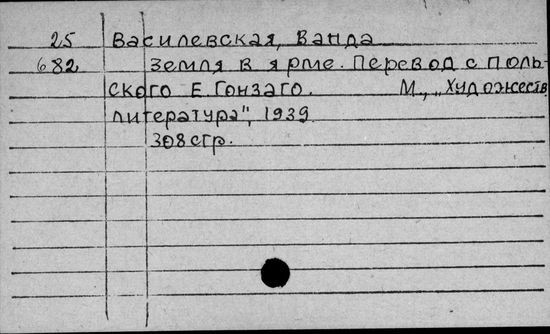 25 Василевская, Ванда
682 Земля в ярме. Перевод с поль-
ского Е. Гонзаго. М., „Художеств
литература", 1939
308 стр.